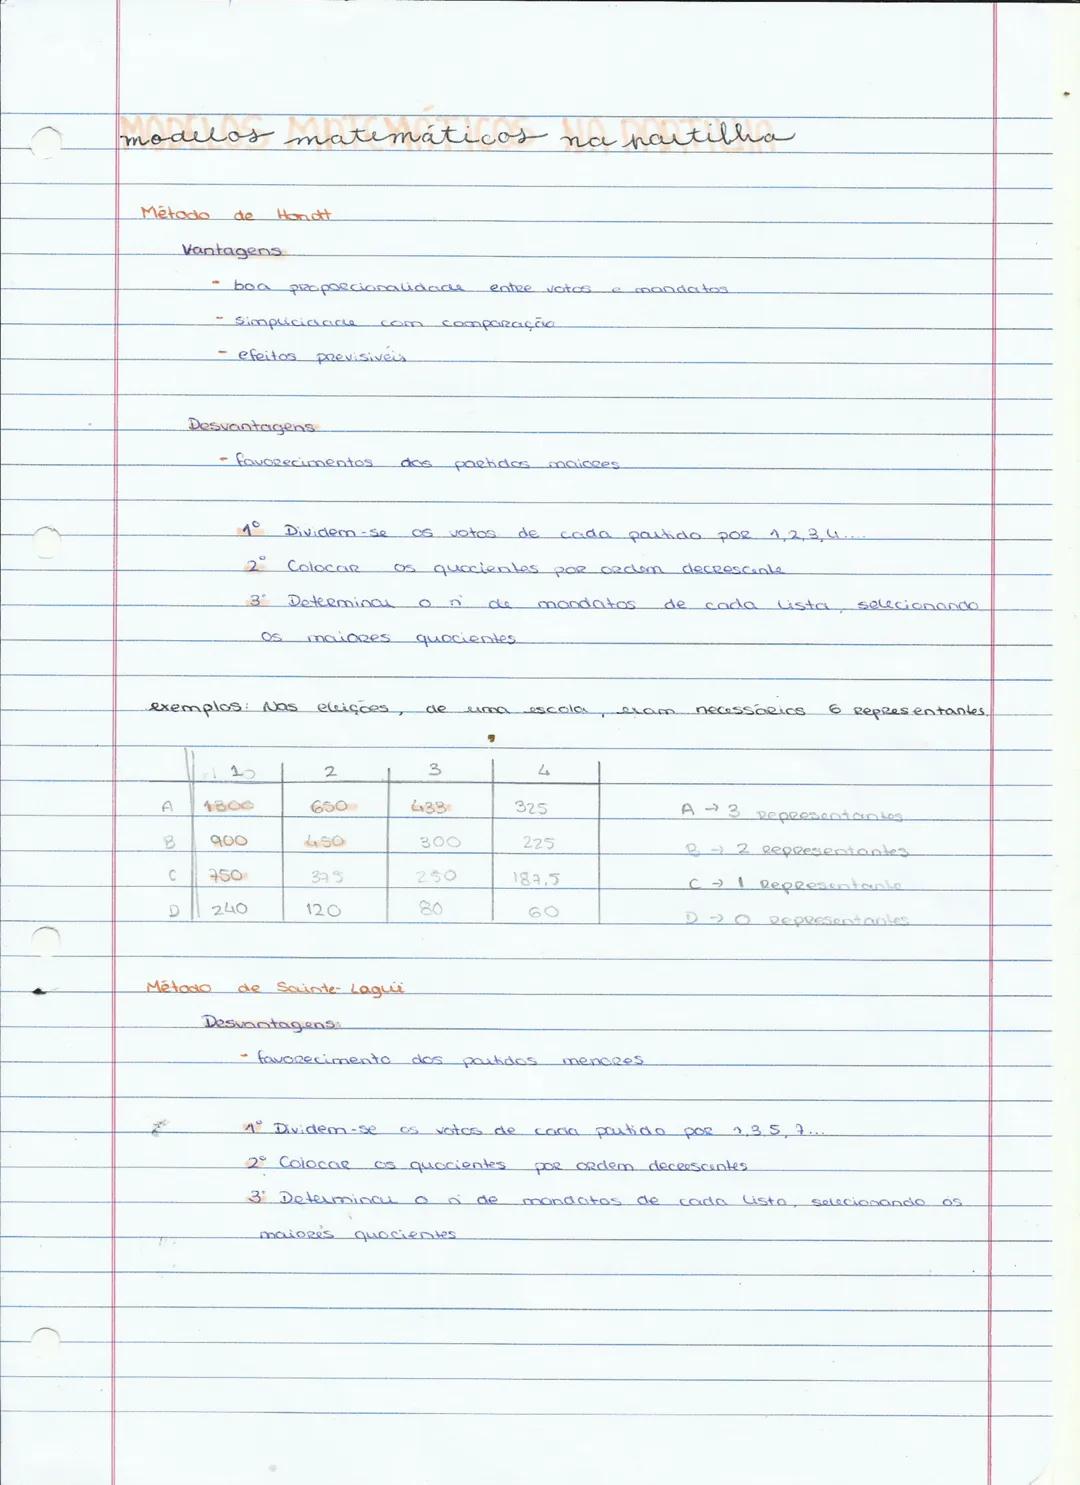 modelos matemáticos na partilha
Método de Hondt
Vantagens
- boa proporcionalidade entre votos e mandatos
- simplicidade com comparação
- efeitos previsíveis
Desvantagens
- favorecimentos dos partidos maiores
1º Dividem-se os votos de cada partido por 1,2,3,4....
2º Colocar os quocientes por ordem decrescente
3º Determinar o nº de mandatos de cada lista, selecionando
os maiores quocientes
exemplos: Nas eleições, de uma escola, eram necessários 6 representantes.
1 2 3 4
A 1300 650 433 325 A → 3 representantes
B 900 450 300 225 B → 2 representantes
C 750 375 250 187,5 C → 1 representante
D 240 120 80 60 D → 0 representantes
Método de Sainte-Laguë
Desvantagens:
- favorecimento dos partidos menores
1º Dividem-se os votos de cada partido por 1,3,5,7...
2º Colocar os quocientes por ordem decrescentes
3º Determinar o nº de mandatos de cada lista, selecionando os
maiores quocientes